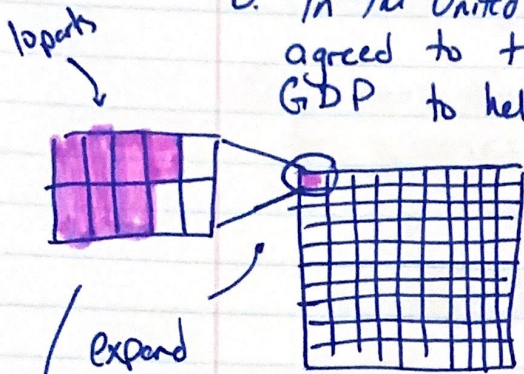 10 parts
In the United
agreed to t
GDP to hel
expand